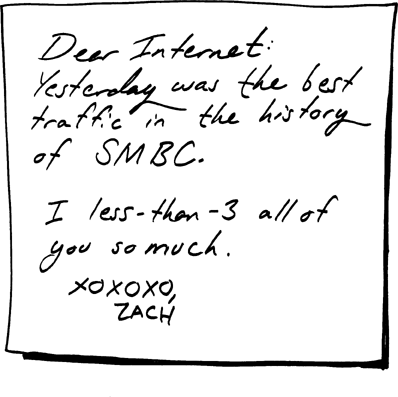 Dear Internet:
Yesterday was the best
traffic in the history
of SMBC.
I less-than-3 all of
you so much.
XOXOXO,
ZACH